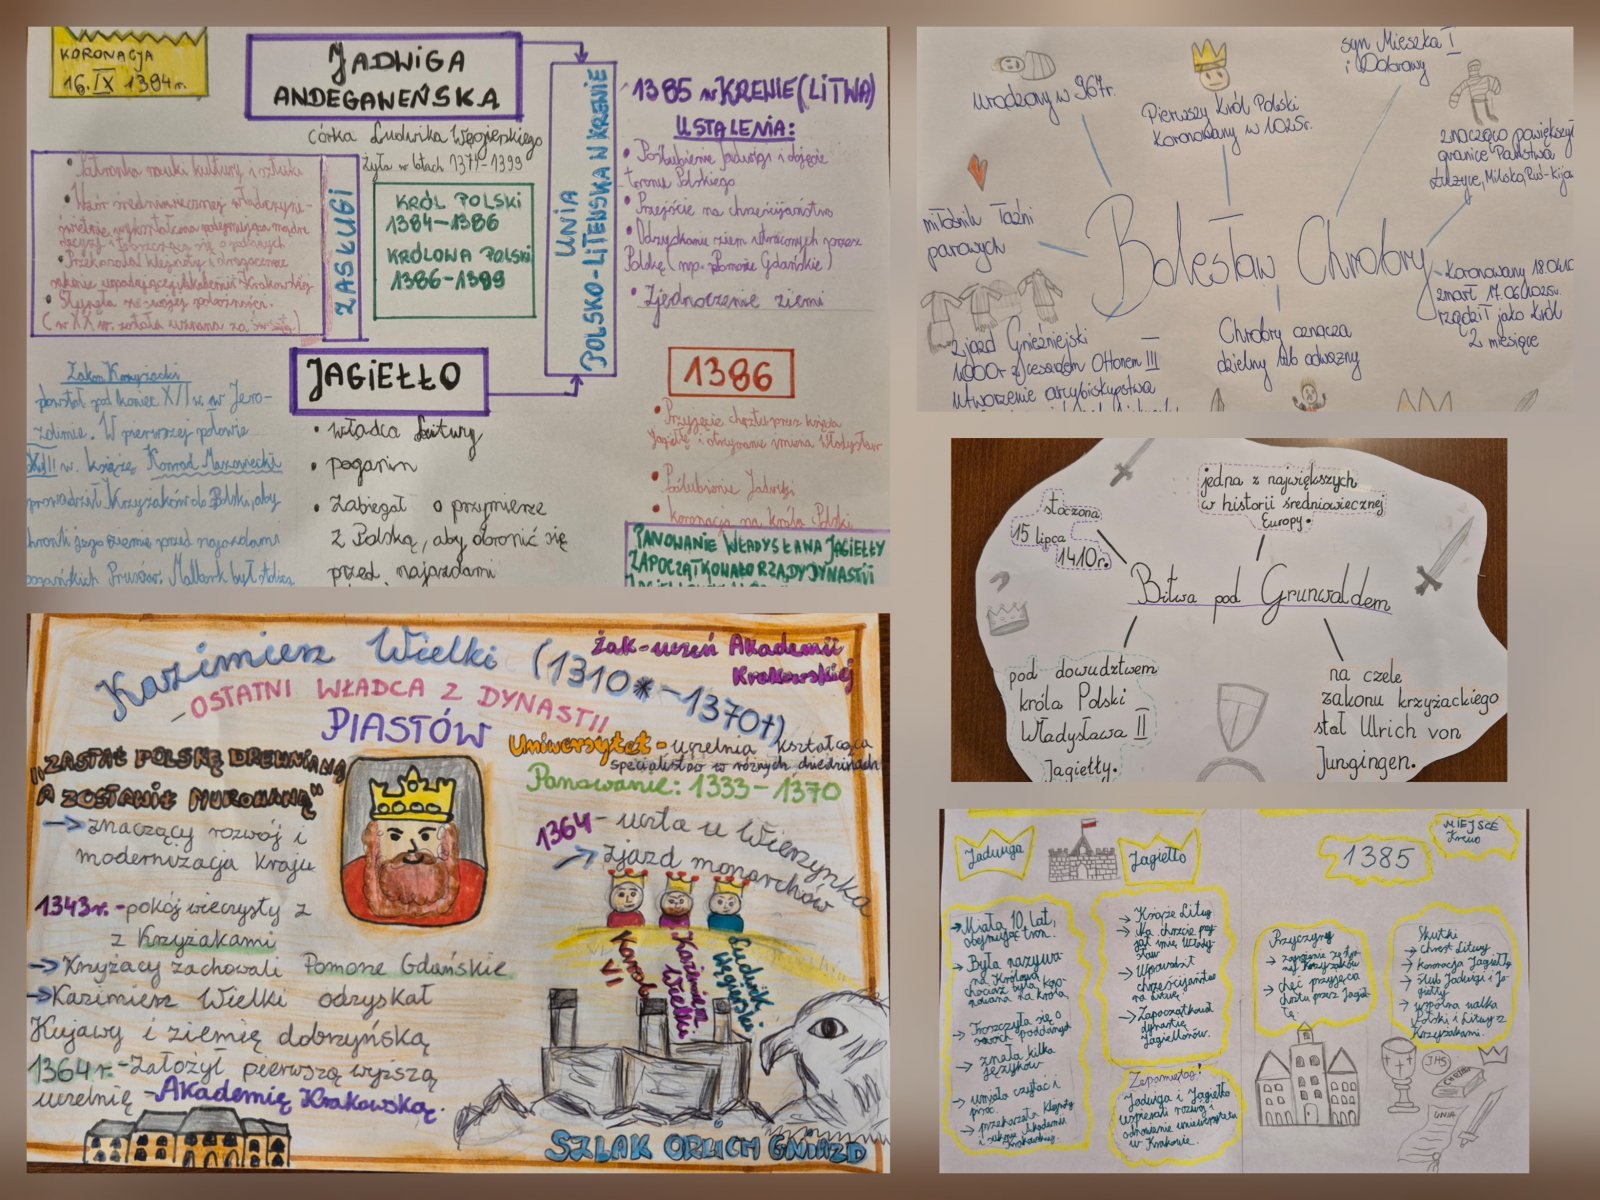 KORONACJA
16.IX 1384r.
JADWIGA
ANDEGAWEŃSKA
córka Ludwika Węgierskiego
żyła w latach 1371-1399
Patronka nauki kultury i sztuki
Wzór średniowiecznej władczyni-
świetnie wykształcona podejmująca mądre
decyzje i troszcząca się o poddanych
Przekazała klejnoty i drogocenne
suknie upadającej Akademii Krakowskiej
Słynęła ze swojej pobożności.
(w XX w. została uznana za świętą)
ZASŁUGI
KRÓL POLSKI
1384-1386
KRÓLOWA POLSKI
1386-1399
UNIA
POLSKO-LITEWSKA W KREWIE
1385 w KREWIE (LITWA)
USTALENIA:
• Poślubienie Jadwigi i objęcie
tronu Polskiego
• Przejście na chrześcijaństwo
• Odzyskaniu ziem utraconych przez
Polskę (np. Pomorze Gdańskie)
• Zjednoczenie ziemi
JAGIEŁŁO
• władca Litwy
• poganin
• Zabiegał o przymierze
z Polską, aby obronić się
przed najazdami
1386
• Przyjęcie chrztu przez księcia
Jagiełłę i otrzymanie imienia Władysław
• Poślubienie Jadwigi
• Koronacja na króla Polski
PANOWANIE WŁADYSŁAWA JAGIEŁŁY
ZAPOCZĄTKOWAŁO RZĄDY DYNASTII
Zakon Krzyżacki
powstał pod koniec XII w. w Jero-
zolimie. W pierwszej połowie
XIII w. książę Konrad Mazowiecki
sprowadził Krzyżaków do Polski, aby
chronili jego ziemie przed najazdami
pogańskich Prusów. Malbork był stolicą
urodzony w 967r.
Pierwszy Król Polski
Koronowany w 1025r.
syn Mieszka I
i Dobrawy
znacząco powiększył
granice Państwa
Łużyce, Milsko, Ruś-Kijo
miłośnik łaźni
parowych
Bolesław Chrobry
Koronowany 18.04.10
zmarł 17.06.1025r.
rządził jako król
2 miesiące
Zjazd Gnieźnieński
1000r z cesarzem Ottonem III
Utworzenie arcybiskupstwa
Chrobry oznacza
dzielny lub odważny
stoczona
15 lipca
1410r.
jedna z największych
w historii średniowiecznej
Europy.
Bitwa pod Grunwaldem
pod dowudztwem
króla Polski
Władysława II
Jagiełły.
na czele
zakonu krzyżackiego
stał Ulrich von
Jungingen.
Kazimierz Wielki (1310*-1370†)
-OSTATNI WŁADCA Z DYNASTII
PIASTÓW
żak-uczeń Akademii
Krakowskiej
Uniwersytet-uczelnia kształcąca
specjalistów w różnych dziedzinach
Panowanie: 1333-1370
"ZASTAŁ POLSKĘ DREWNIANĄ
A ZOSTAWIŁ MUROWANĄ"
→ znaczący rozwój i
modernizacja kraju
1343r.-pokój wieczysty z
z Krzyżakami
→ Krzyżacy zachowali Pomorze Gdańskie
→ Kazimierz Wielki odzyskał
Kujawy i ziemię dobrzyńską
1364r.-Założył pierwszą wyższą
uczelnię-Akademię Krakowską.
1364-uczta u Wierzynka
→ Zjazd monarchów
Karol
VI
Kazimierz
Wielki
Ludwik
Węgierski
SZLAK ORLICH GNIAZD
Jadwiga
Jagiełło
1385
MIEJSCE
Krewo
→ Miała 10 lat,
obejmując tron.
→ Była nazywa-
na Królową
chociaż była koro-
nowana na króla
→ Troszczyła się o
swoich poddanych
→ znała kilka
języków
→ umiała czytać i
pisać.
→ przekazała klejnoty
i suknie Akademii
Krakowskiej.
→ Książe Litwy
→ Na chrzcie przy-
jął imię Włady-
sław
→ Wprowadził
chrześcijaństwo
na Litwę.
→ Zapoczątkował
dynastię
Jagiellonów.
Zapamiętaj!
Jadwiga i Jagiełło
wspierali rozwój i
odnowienie uniwersytetu
w Krakowie.
Przyczyny
→ zagrożenie ze stro-
ny Krzyżaków
→ chęć przyjęcia
chrztu przez Jagieł-
łę.
Skutki
→ chrzest Litwy
→ koronacja Jagiełły
→ ślub Jadwigi i Ja-
giełły
→ wspólna walka
Polski i Litwy z
Krzyżakami.
JHS
UNIA